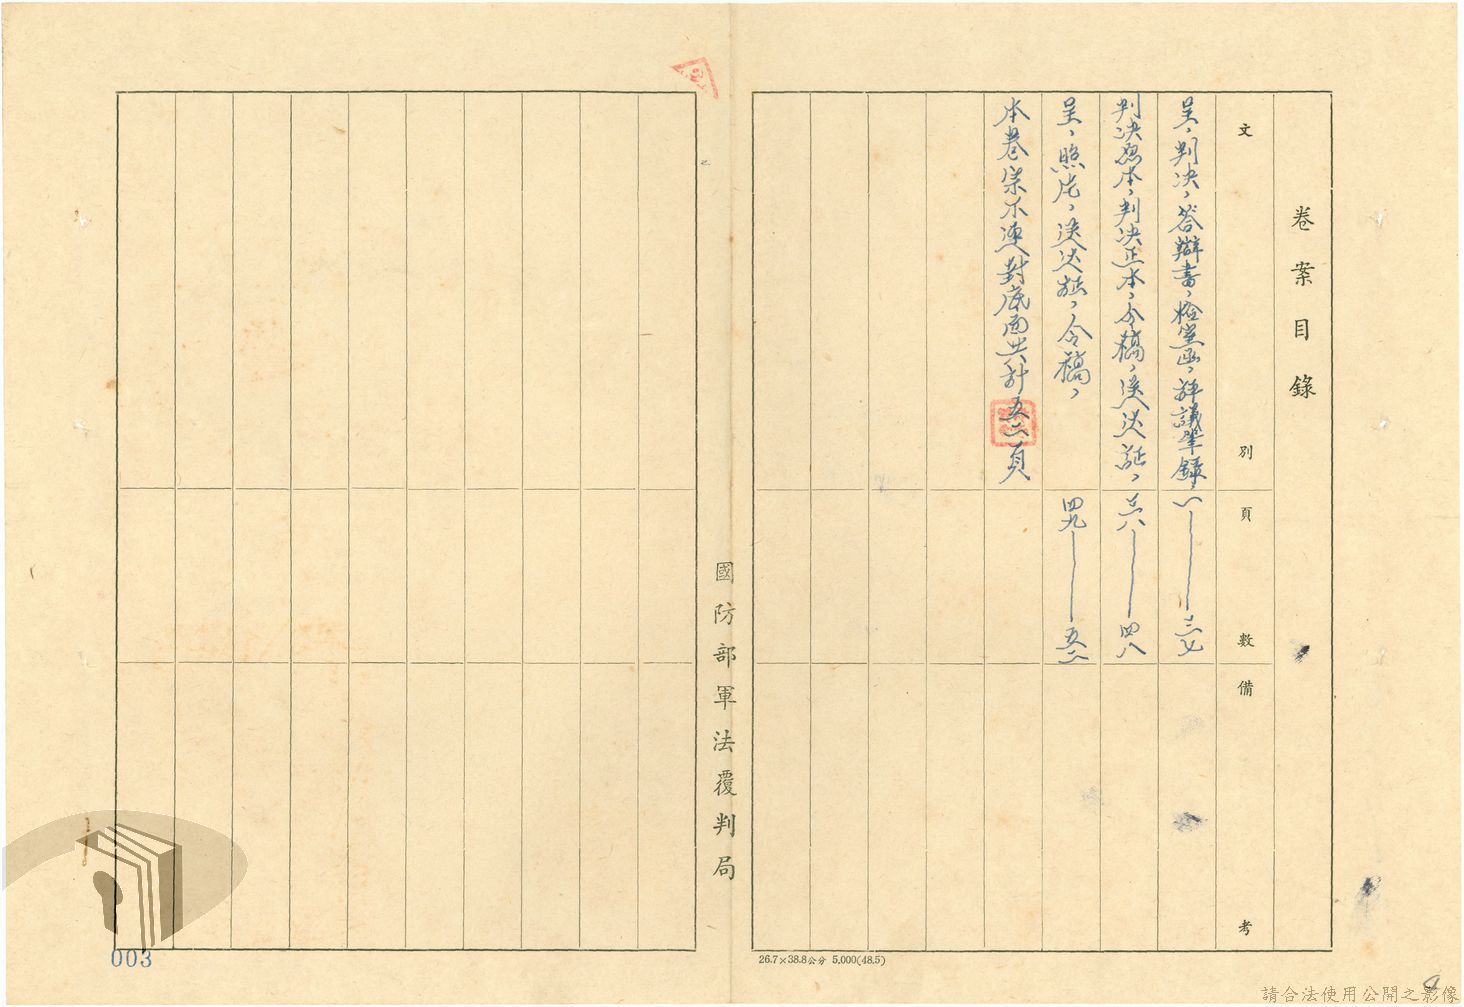 卷案目錄
文別 頁數 備考
呈，判決，答辯書，檢察函，評議筆錄， 一——三七
判決原本，判決正本，令稿，送達證， 三八——四八
呈，照片，送達證，令稿， 四九——五二
本卷宗不連封底面共計五二頁
國防部軍法覆判局
26.7×38.8公分 5,000(48.5)
003
請合法使用公開之影像